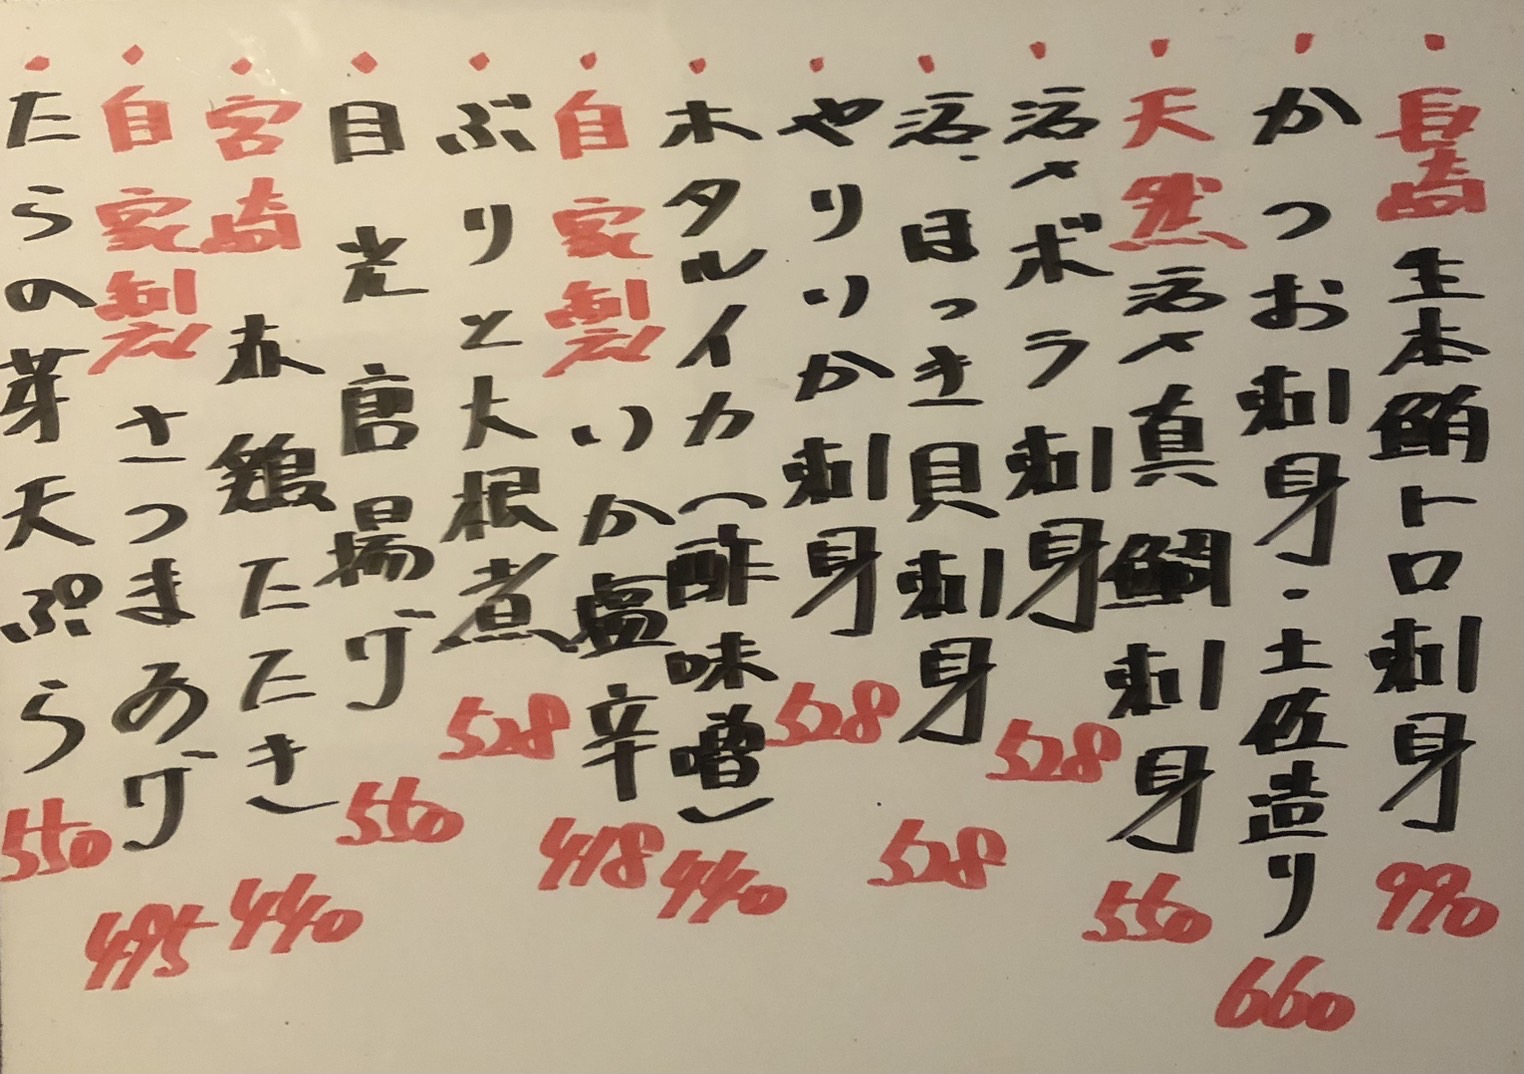 長崎生本鮪トロ刺身 990
かつお刺身・土佐造り 660
天然活〆真鯛刺身 550
活〆ボラ刺身 528
活、ほっき貝刺身 528
やりいか刺身 528
ホタルイカ(酢味噌) 440
自家製いか塩辛 418
ぶりと大根煮 528
目光唐揚げ 550
宮崎赤鶏たたき 440
自家製さつまあげ 495
たらの芽天ぷら 550